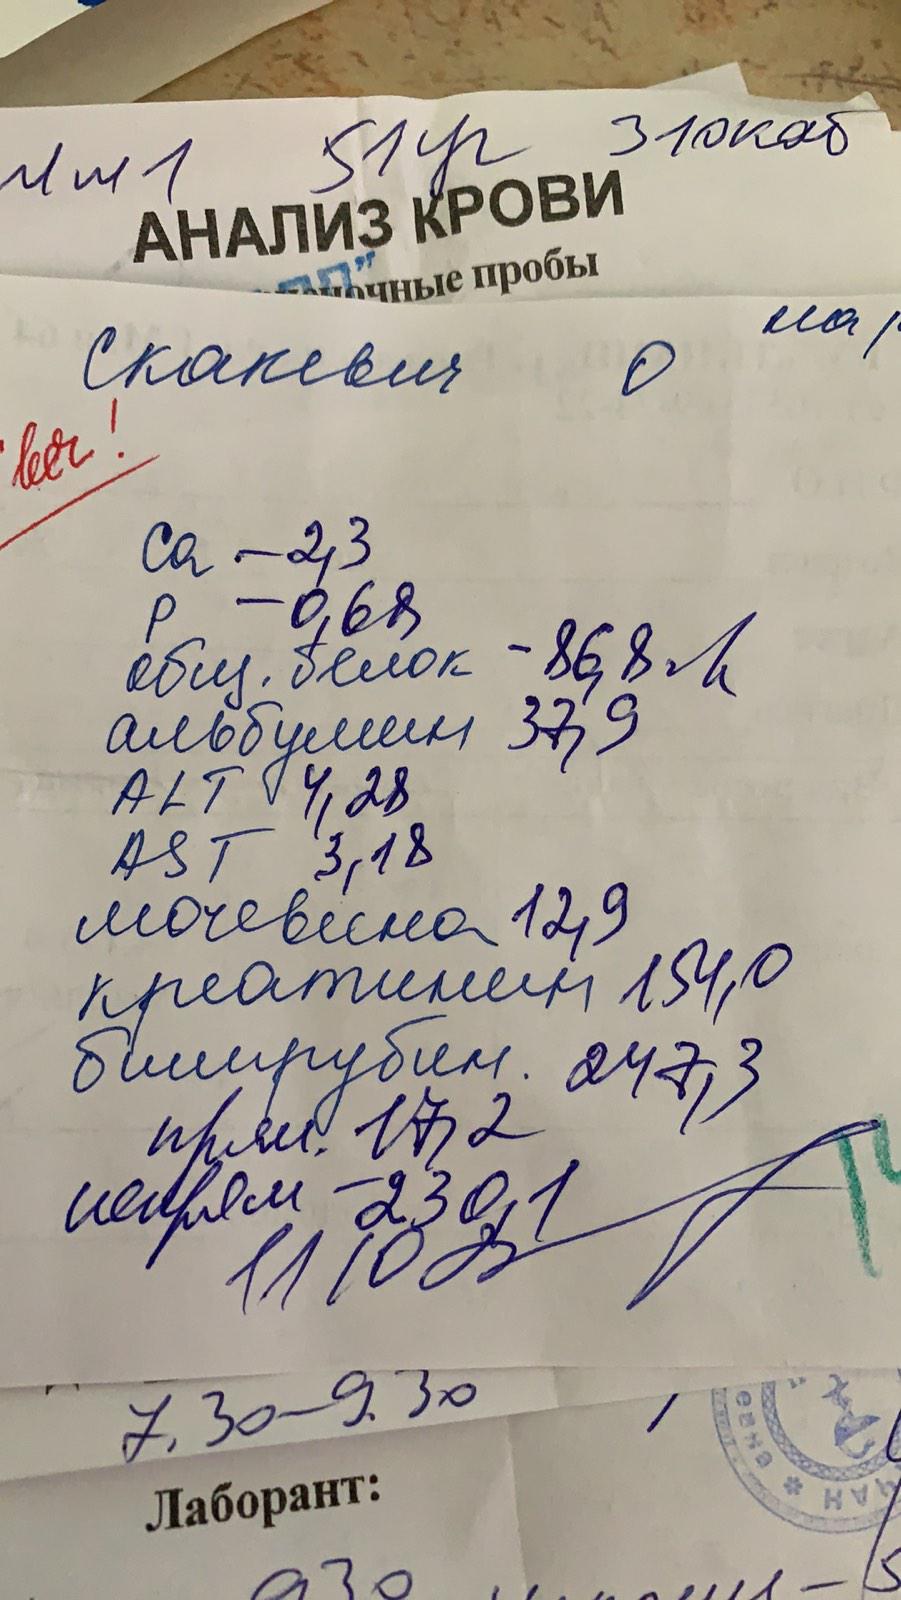 51 уг 310каб
АНАЛИЗ КРОВИ
пробы
Скакевич О
Ca - 2,3
P - 0,68
общ. белок - 86,8 г/л
альбумин 37,9
ALT 4,28
AST 3,18
мочевина 12,9
креатинин 154,0
билирубин. 247,3
прям. 17,2
непрям - 230,1
11/10
7.30-9.30
Лаборант:
930